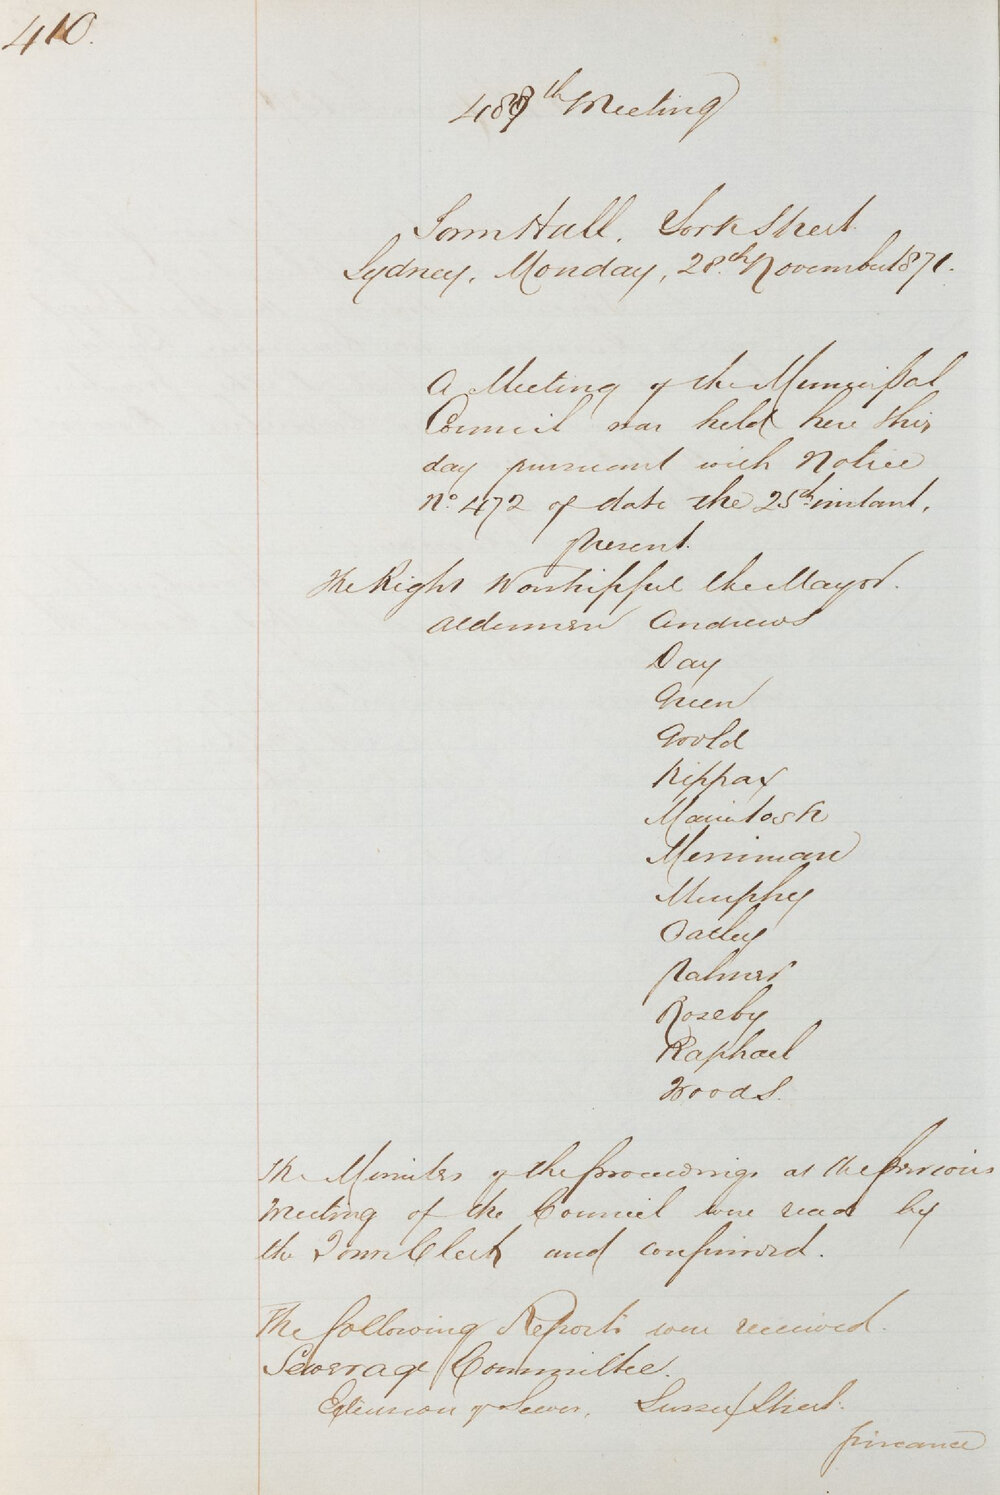 410.
488th Meeting
Town Hall, York Street.
Sydney, Monday, 28th November 1871.
A Meeting of the Municipal
Council was held here this
day pursuant with Notice
No. 472 of date the 25th instant,
present.
The Right Worshipful the Mayor.
Aldermen Andrews
Day
Green
Goold
Kippax
Macintosh
Merriman
Murphy
Oatley
Palmer
Roseby
Raphael
Woods.
The Minutes of the proceedings at the previous
Meeting of the Council were read by
the Town Clerk and confirmed.
The following Reports were received.
Sewerage Committee.
Extension of Sewer, Sussex Street.
finance